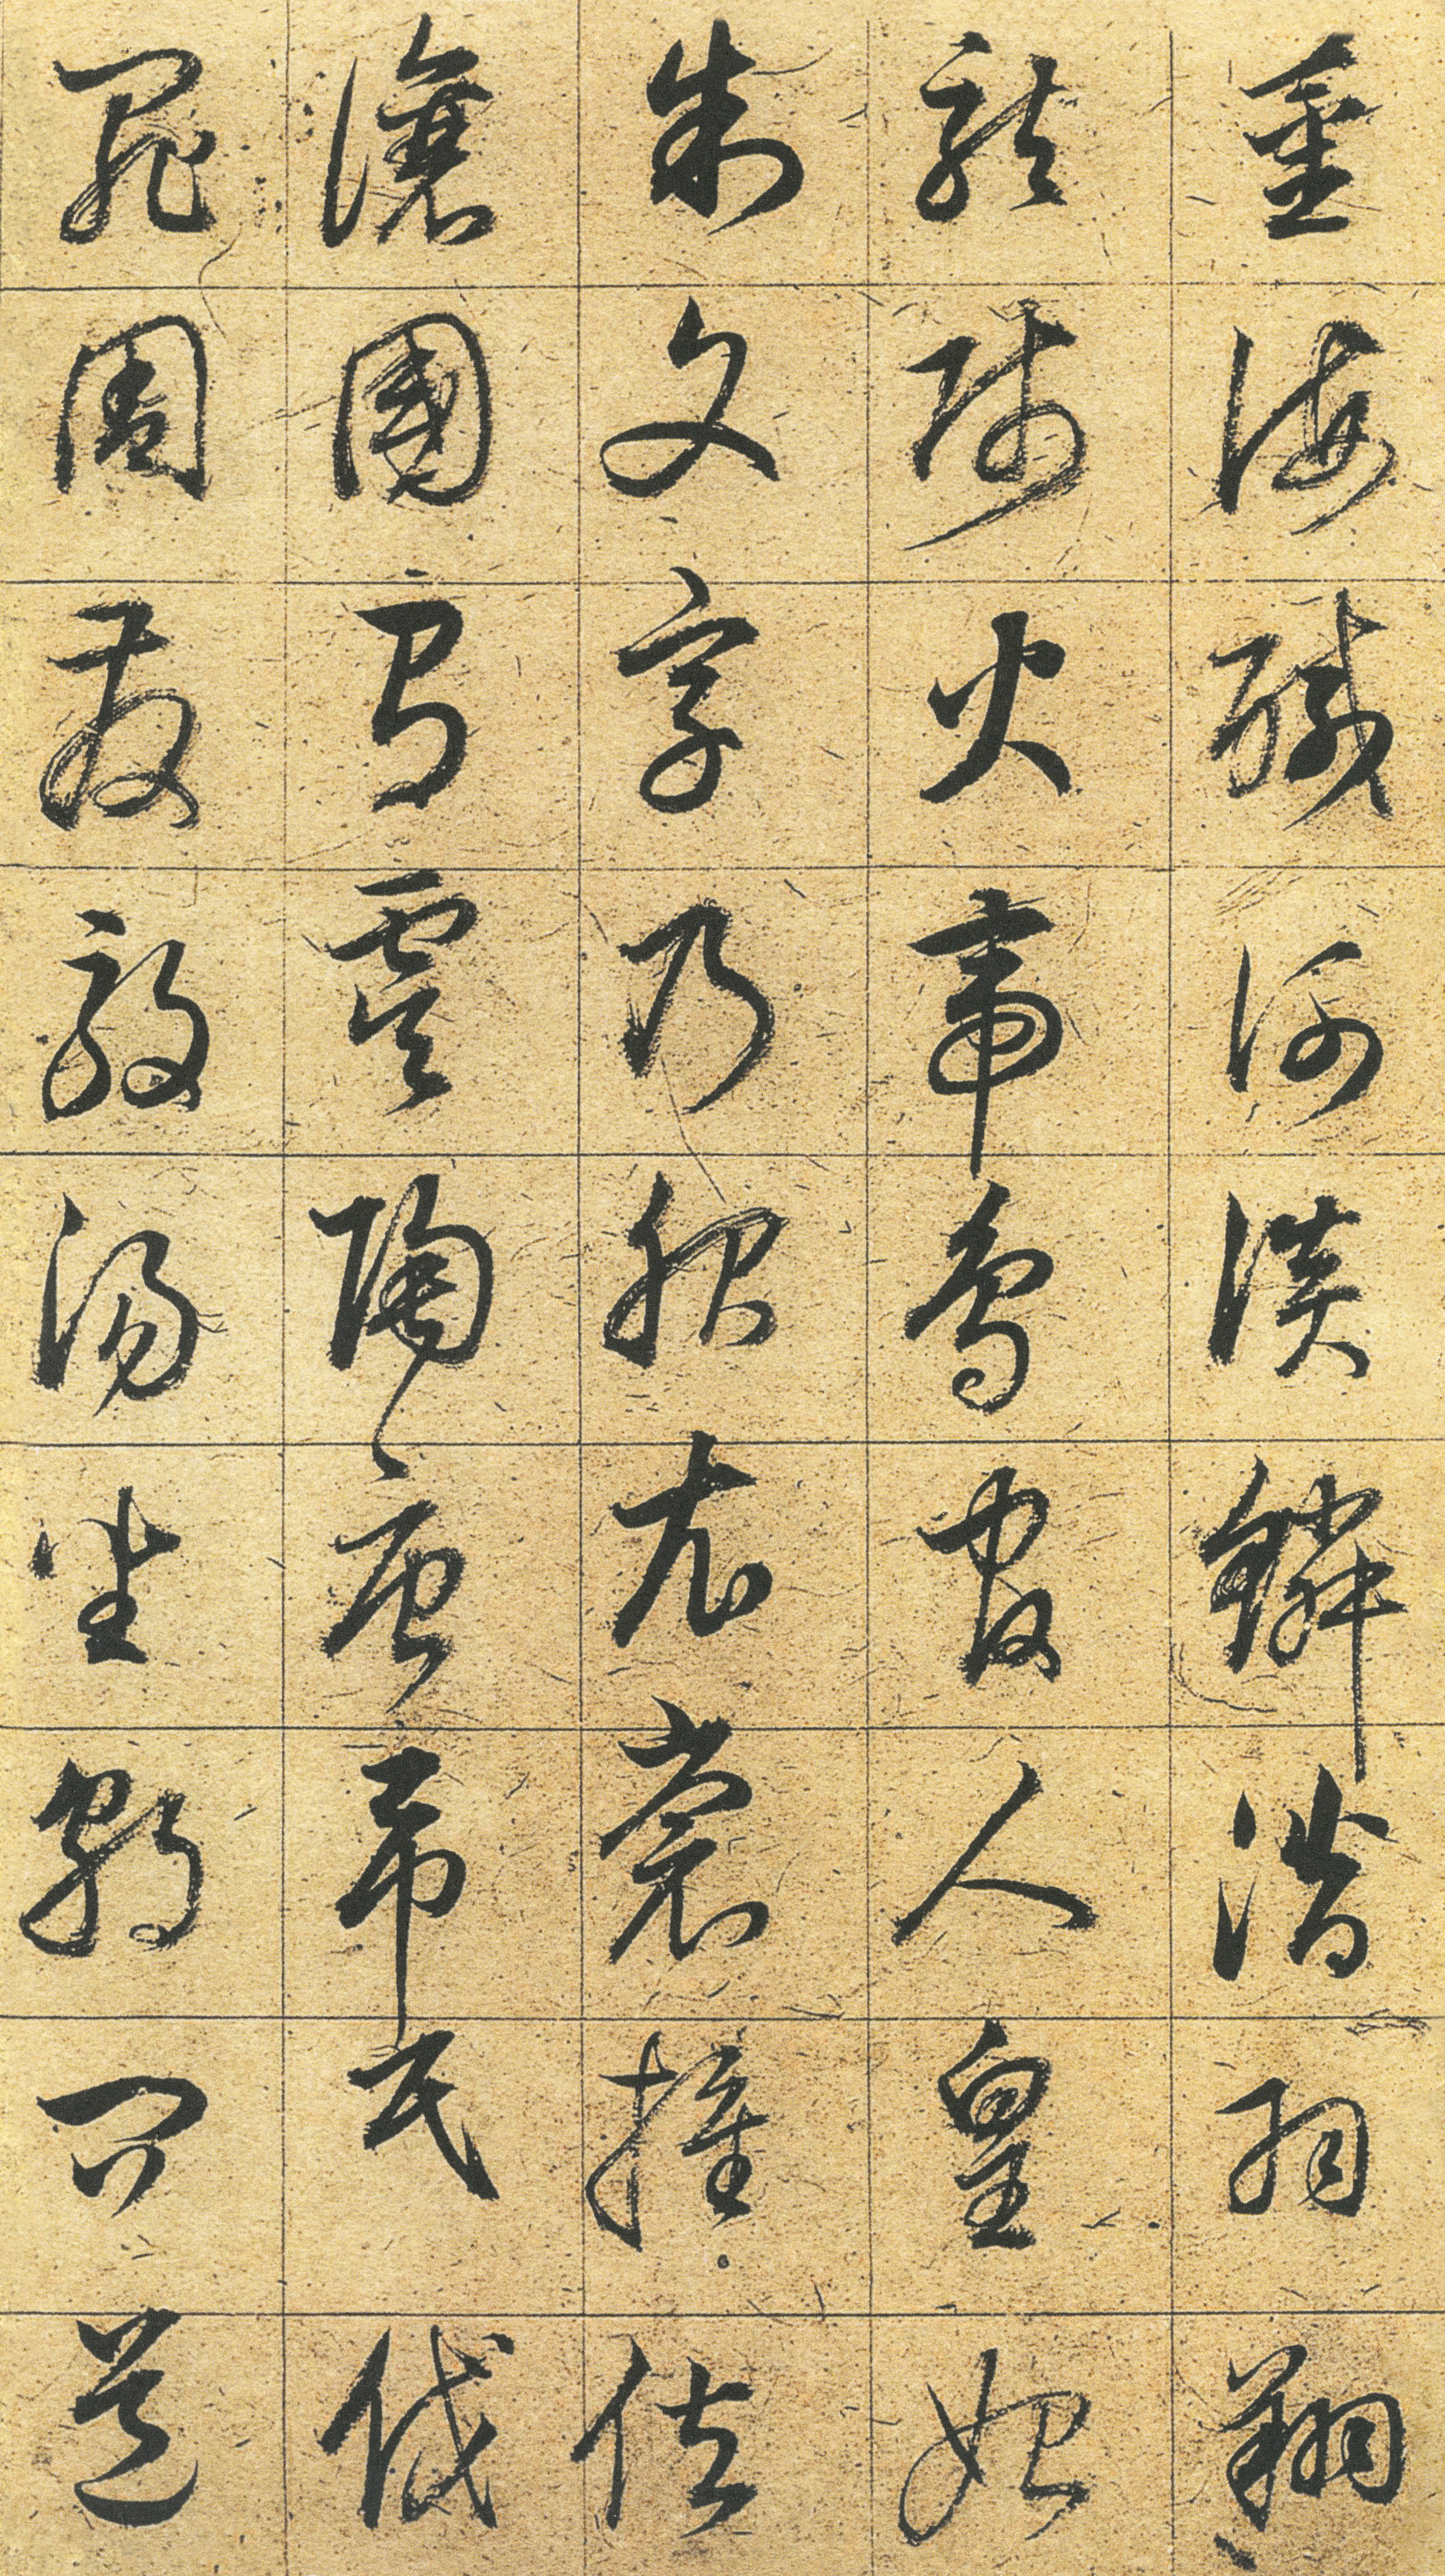 薑海鹹河淡鱗潛羽翔
龍師火帝鳥官人皇始
制文字乃服衣裳推位
讓國有虞陶唐弔民伐
罪周發殷湯坐朝問道